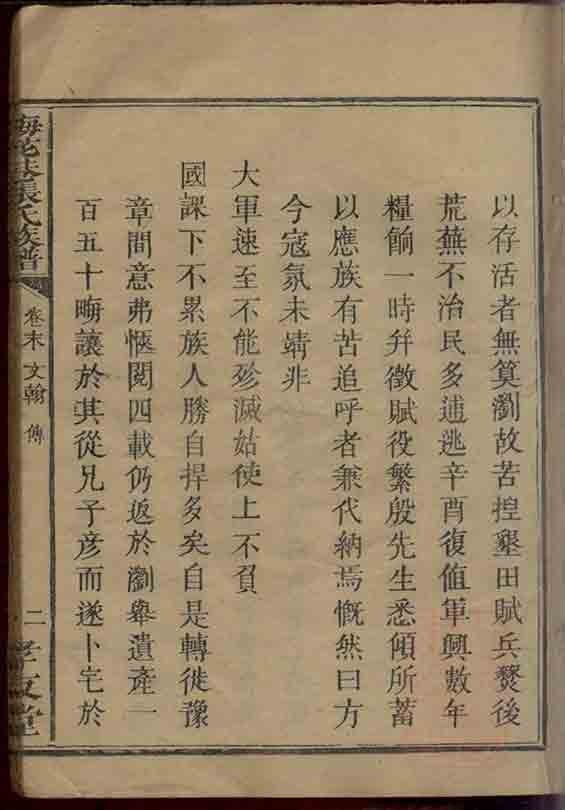 以存活者無算瀏故苦揑墾田賦兵燹後
荒蕪不治民多逋逃辛酉復值軍興數年
糧餉一時幷徵賦役繁殷先生悉傾所蓄
以應族有苦追呼者兼代納焉慨然曰方
今寇氛未靖非
大軍速至不能殄滅姑使上不負
國課下不累族人勝自捍多矣自是轉徙豫
章間意弗愜閱四載仍返於瀏舉遺產一
百五十畮讓於其從兄子彥而遂卜宅於
梅花巷張氏族譜
卷末 文翰 傳
二
孝友堂